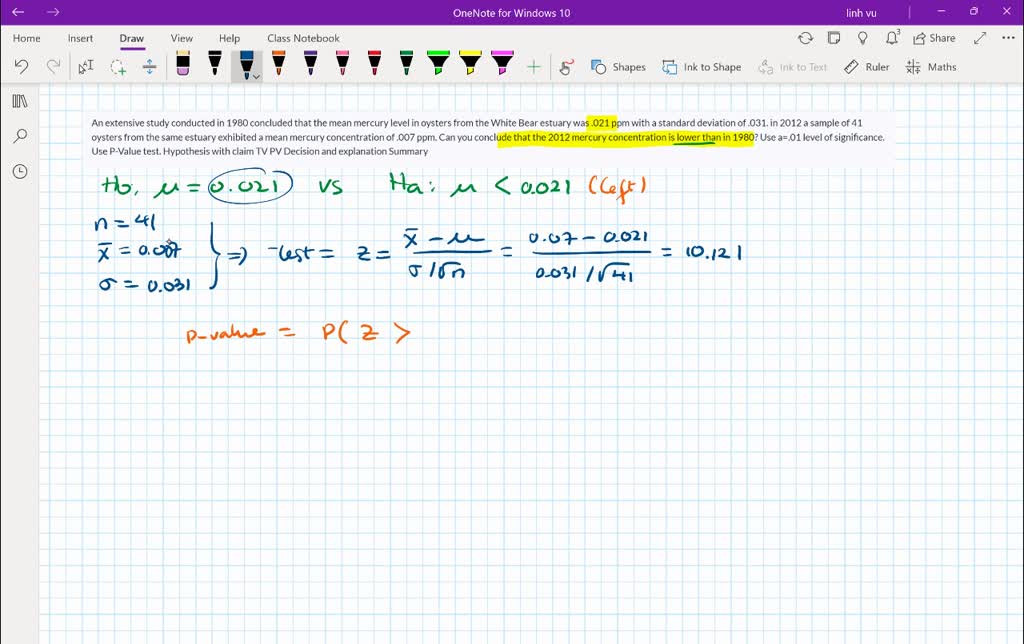 OneNote for Windows 10
linh vu
Home Insert Draw View Help Class Notebook
Share
Shapes Ink to Shape Ink to Text Ruler Maths
An extensive study conducted in 1980 concluded that the mean mercury level in oysters from the White Bear estuary was .021 ppm with a standard deviation of .031. in 2012 a sample of 41
oysters from the same estuary exhibited a mean mercury concentration of .007 ppm. Can you conclude that the 2012 mercury concentration is lower than in 1980? Use a=.01 level of significance.
Use P-Value test. Hypothesis with claim TV PV Decision and explanation Summary
Ho: μ = 0.021 vs Ha: μ < 0.021 (left)
n = 41
x̄ = 0.007
σ = 0.031
} => Test = z = (x̄ - μ) / (σ/√n) = (0.07 - 0.021) / (0.031/√41) = 10.121
p-value = P( z >